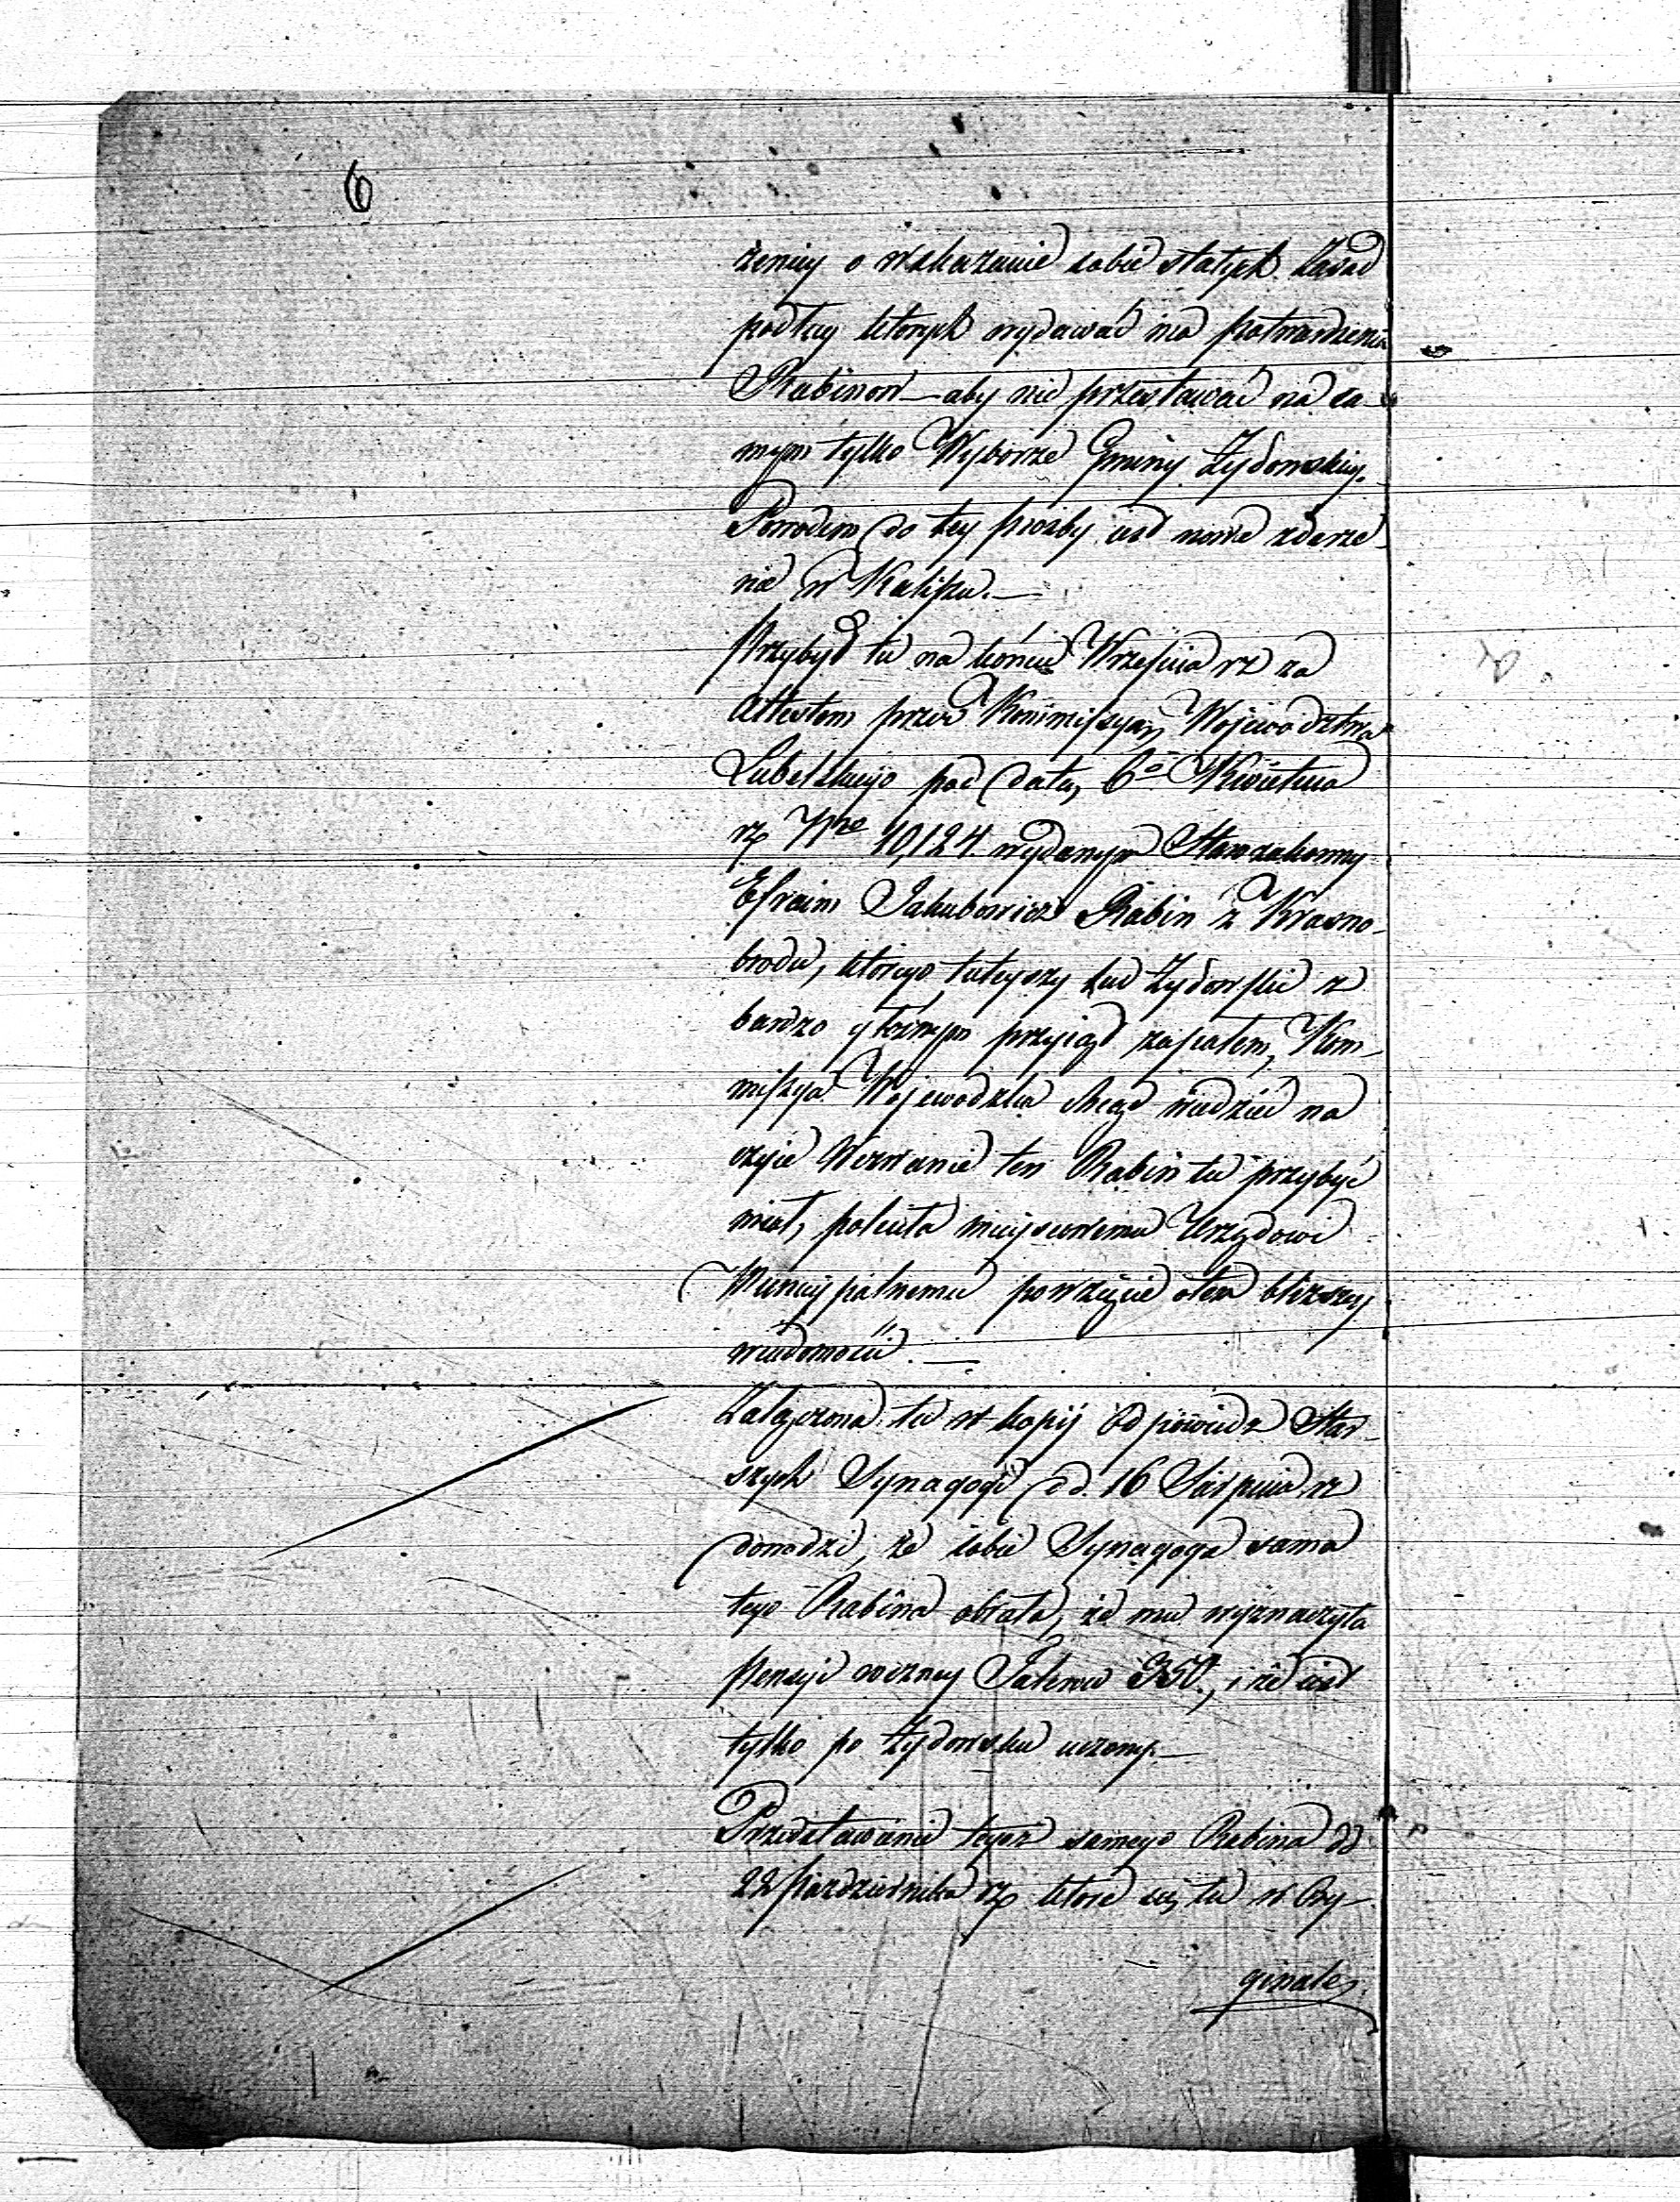 6
żeniey o wskazanie sobie stałych Zasad
podług których wydawać ma potwierdzenia
Rabinow — aby nie przestawać na sa-
mym tylko Wyborze Gminy Żydowskiey.
Powodem do tey prośby iest nowe zdarze-
nie w Kaliszu. —
Przybył tu na końcu Września rz za
Attestem przez Kommissyą Woiewodztwa
Lubelskiego pod datą 6º Kwietnia
rz Nro 10,124. wydanym Starozakonny
Efraim Jakubowicz Rabin z Krasno-
brodu, którego tuteyszy lud Żydowski z
bardzo głośnym przyiął zapałem, Kom-
missya Wojewodzka chcąc wiedzieć na
czyie Wezwanie ten Rabin tu przybyć
miał, poleciła mieyscowemu Urzędowi
Municypalnemu powzięcie otem bliższey
wiadomości. —
Załączona tu w kopij Odpowiedz Star-
szych Synagogi dd. 16 Sierpnia rz
donodzi, że sobie Synagoga sama
tego Rabina obrała, że mu wyznaczyła
Pensyi roczney Talerow 350., i że iest
tylko po Żydowsku uczony. —
Przedstawienie tegoż samego Rabina dd
22 Października rz które się tu w Ory-
ginale